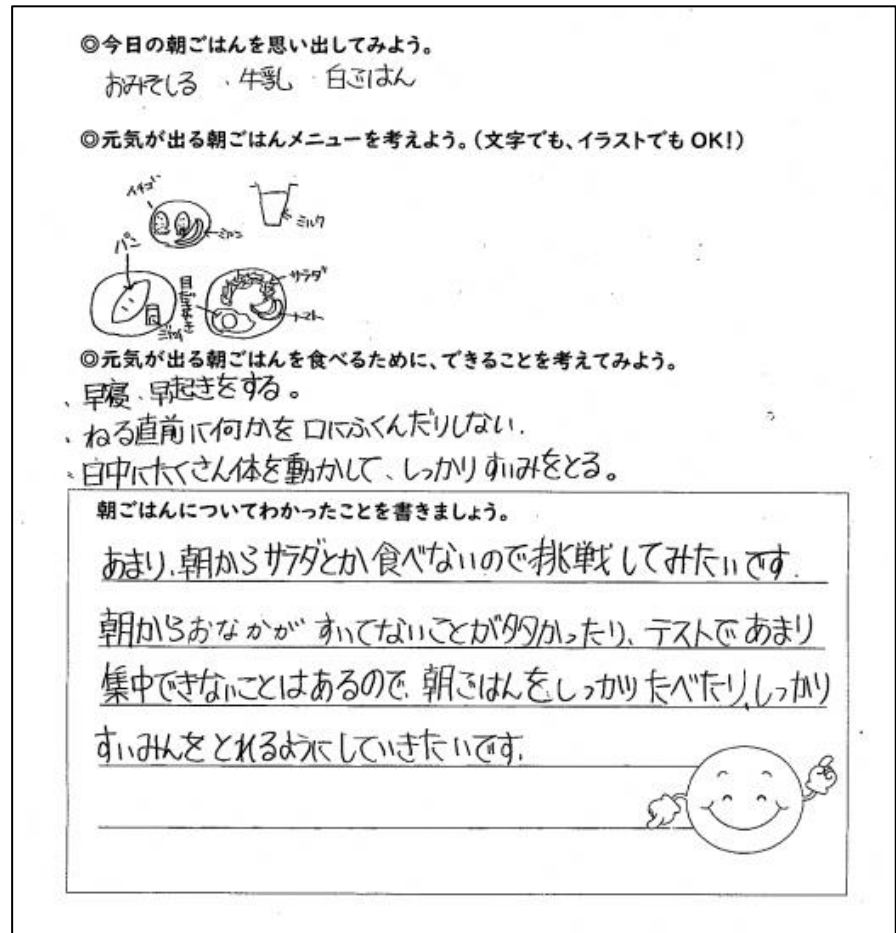 ◎今日の朝ごはんを思い出してみよう。
おみそしる 、牛乳 白ごはん
◎元気が出る朝ごはんメニューを考えよう。(文字でも、イラストでもOK!)
イチゴ
ミルク
パン
目だまやき
サラダ
トマト
◎元気が出る朝ごはんを食べるために、できることを考えてみよう。
、早寝、早起きをする。
、ねる直前に何かを口にふくんだりしない.
、日中にたくさん体を動かして、しっかりすいみをとる。
朝ごはんについてわかったことを書きましょう。
あまり、朝からサラダとか食べないので挑戦してみたいです.
朝からおなかがすいてないことが多かったり、テストであまり
集中できないことはあるので、朝ごはんを、しっかりたべたり、しっかり
すいみんをとれるようにしていきたいです.